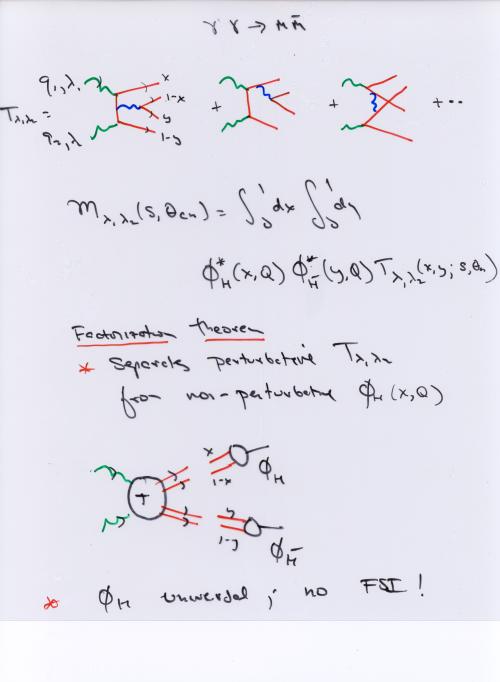 γ γ → M M̄
q₁, λ₁ x
1-x
T_{λ₁λ₂} = + + + ··
y
q₂, λ 1-y
M_{λ₁λ₂}(s, θ_{cm}) = ∫₀¹ dx ∫₀¹ dy
ϕ*_M(x,Q) ϕ*_{M̄}(y,Q) T_{λ₁λ₂}(x,y; s,θ_{cm})
Factorization theorem
* Separates perturbative T_{λ₁λ₂}
from non-perturbative ϕ_M(x,Q)
x
1-x ϕ_M
T
y
1-y ϕ_{M̄}
* ϕ_M universal; no FSI!